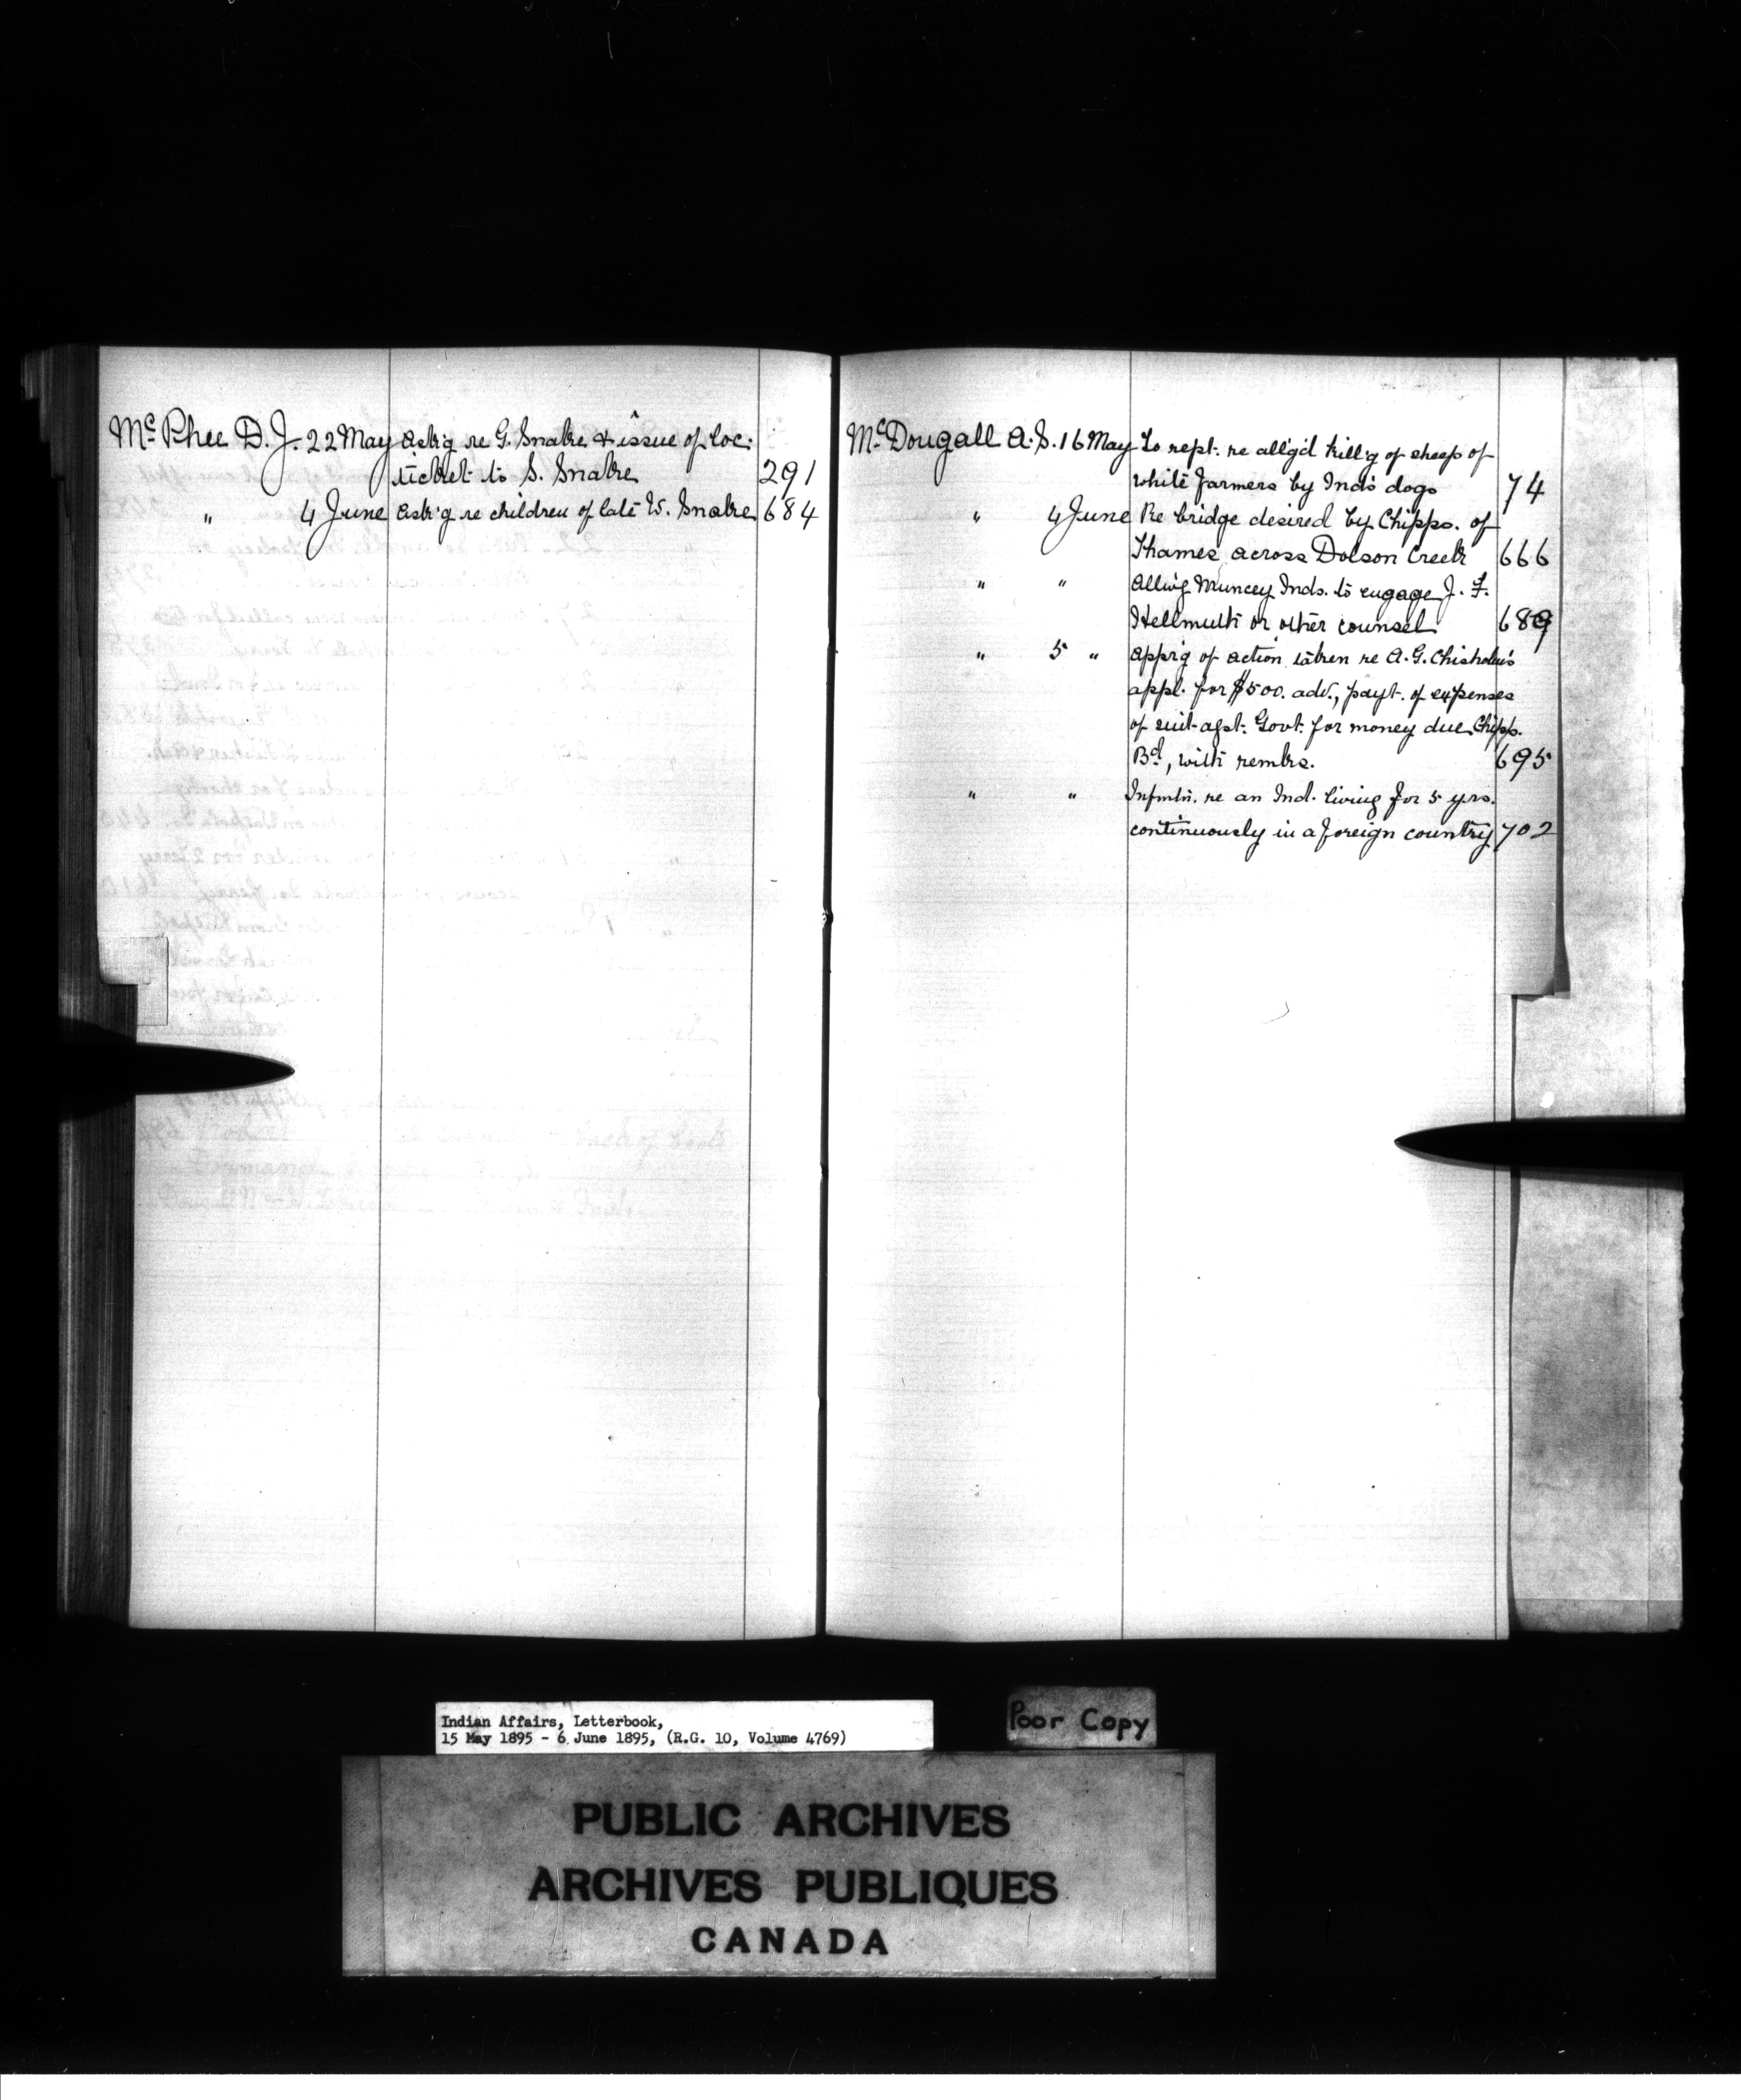 McPhee D. J. 22 May Ask'g re G. Snake & issue of loc.
ticket to S. Snake 291
" 4 June Ask'g re children of late W. Snake 684
McDougall A. S. 16 May To rept. re alleg'd kill'g of sheep of
white farmers by Inds dogs 74
" 4 June Re bridge desired by Chipps. of
Thames across Dolson Creek 666
" " Allw'g Muncey Inds. to engage J. F.
Hellmuth or other counsel 689
" 5 " App'g of action taken re A. G. Chisholm's
appl. for $500. adv., payt. of expenses
of suit agst. Govt. for money due Chipps.
Bd, with remks. 695
" " Infmtn. re an Ind. living for 5 yrs.
continuously in a foreign country 702
Indian Affairs, Letterbook,
15 May 1895 - 6 June 1895, (R.G. 10, Volume 4769)
Poor Copy
PUBLIC ARCHIVES
ARCHIVES PUBLIQUES
CANADA